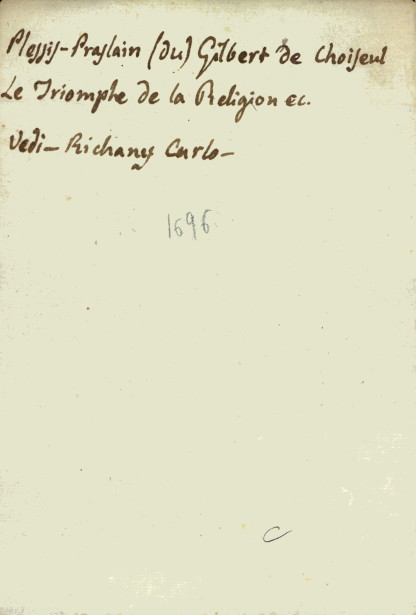 Plessis-Praslain (du) Gilbert de Choiseul
Le Triomphe de la Religion ec.
Vedi- Richany Carlo-
1696
C